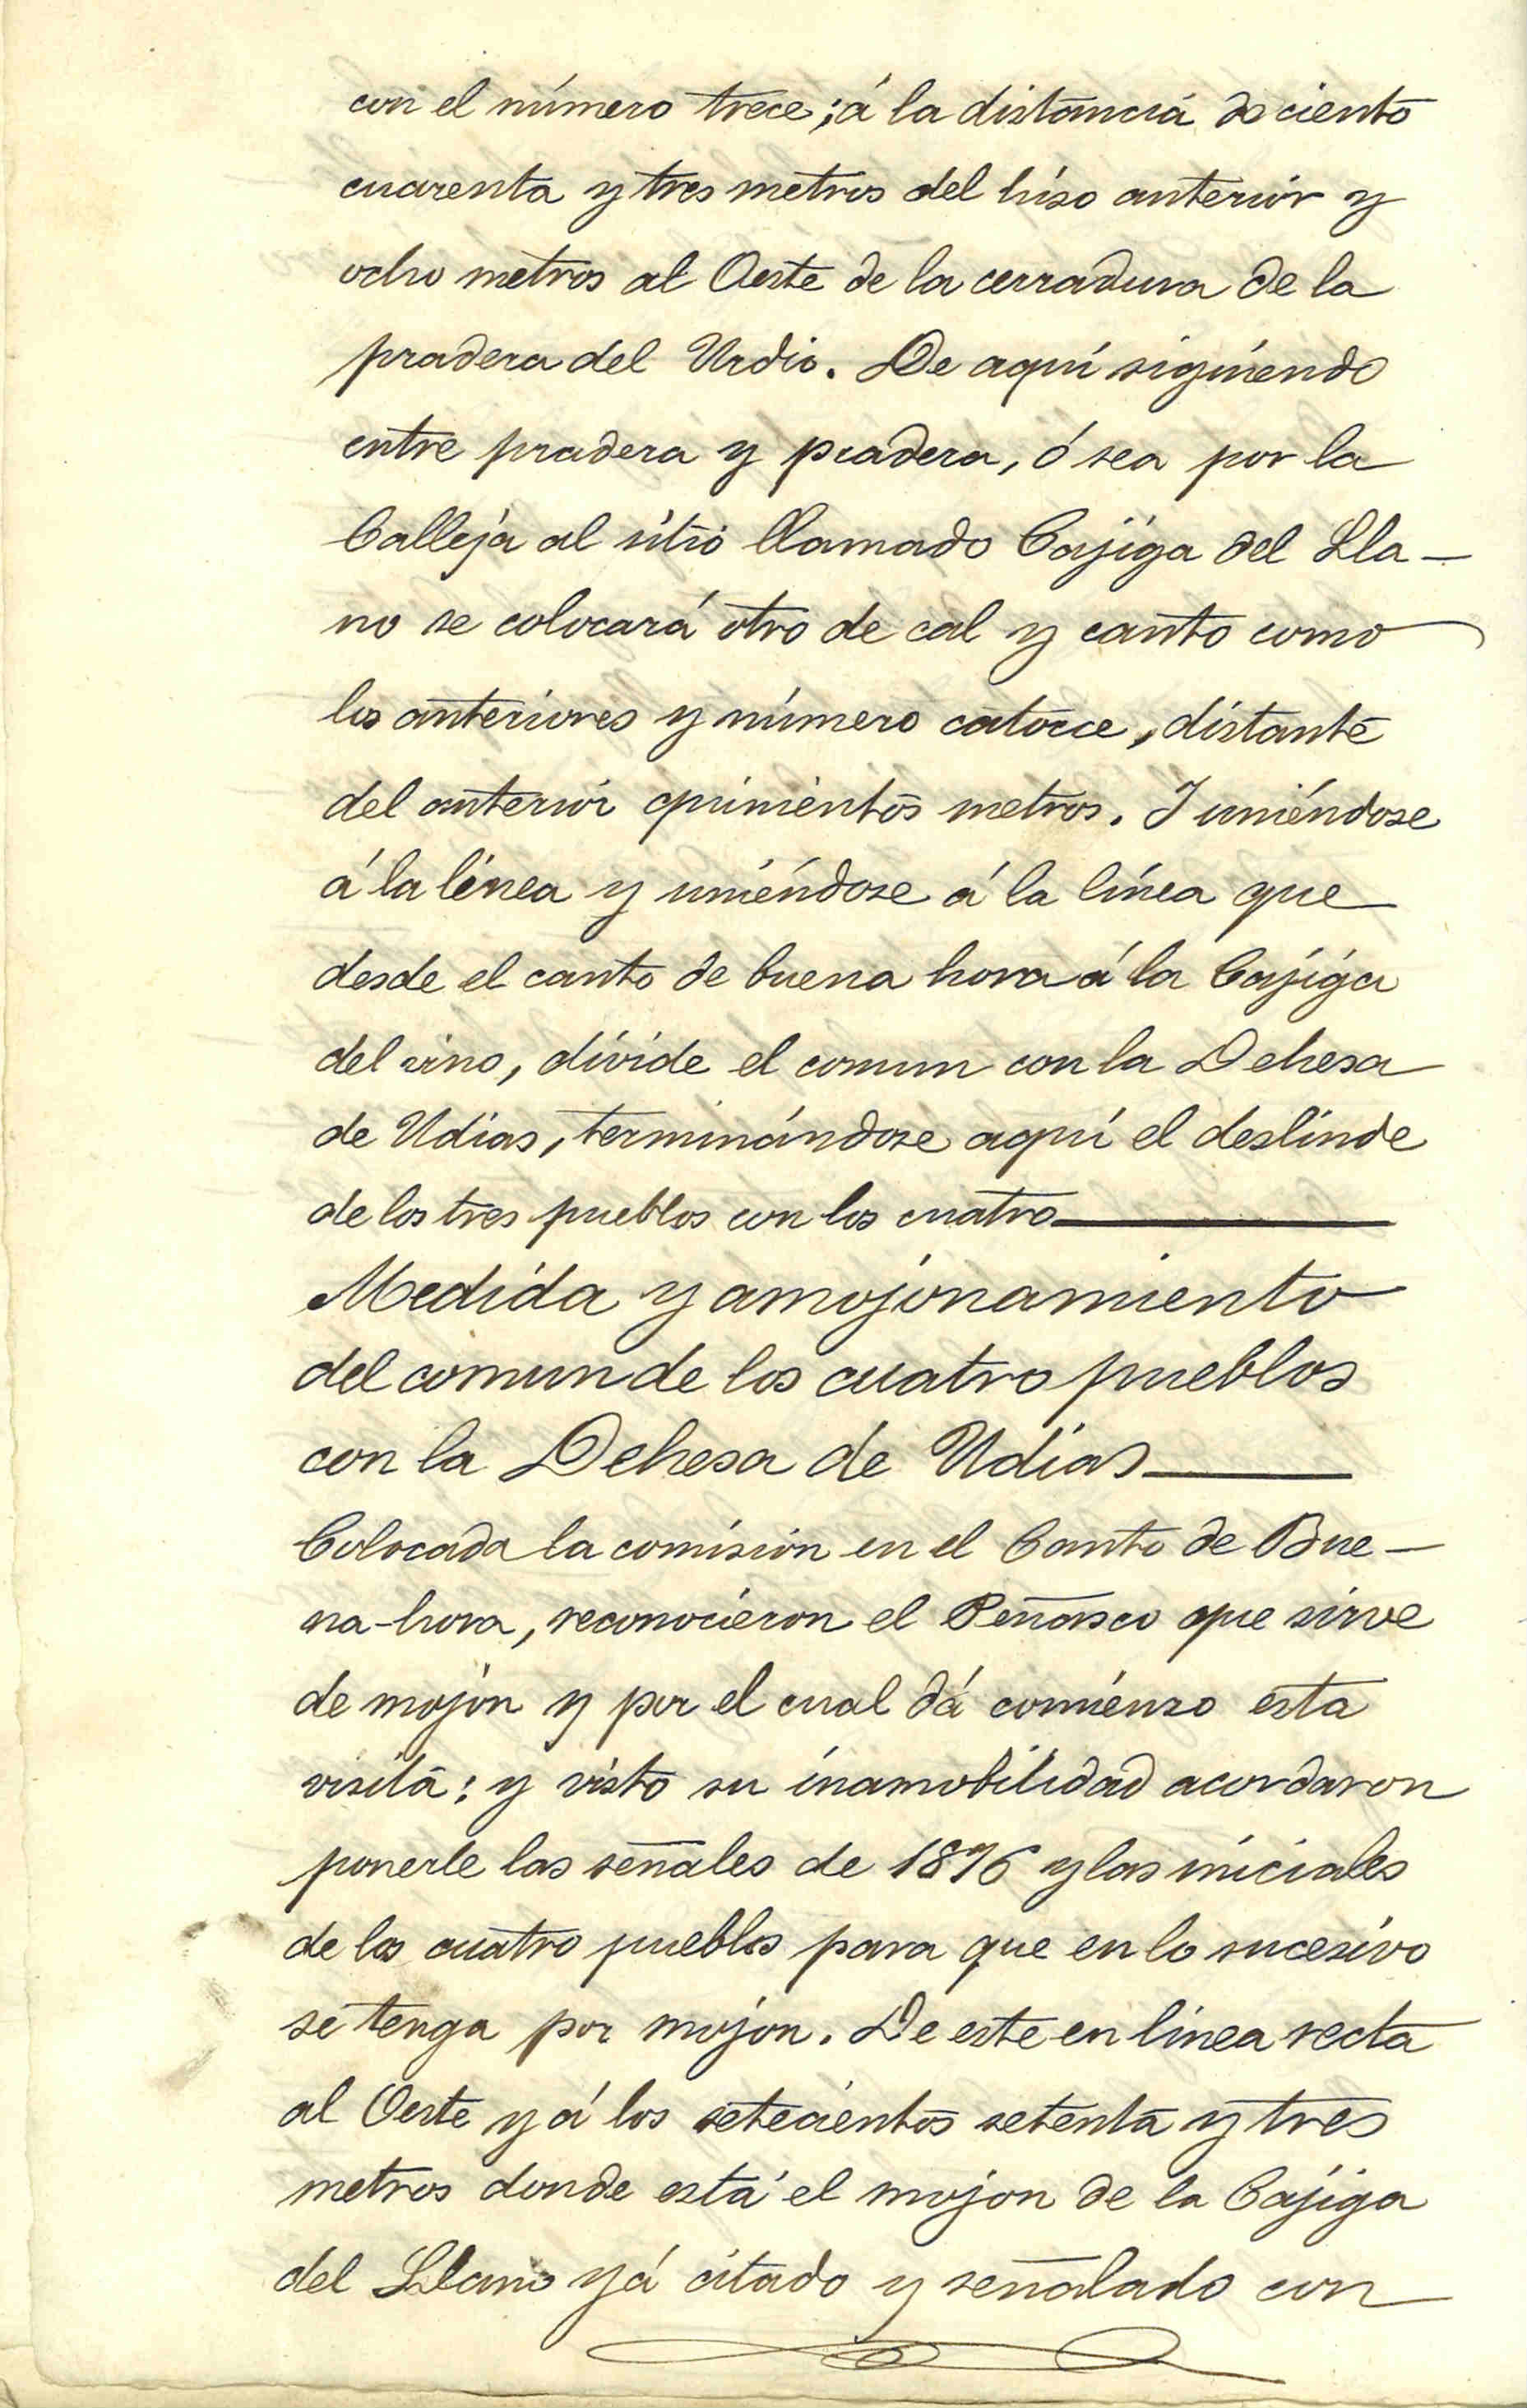 con el número trece; á la distancia de ciento
cuarenta y tres metros del hiso anterior y
ocho metros al Oeste de la cerradura de la
pradera del Urdio. De aquí siguiendo
entre pradera y pradera, ó sea por la
Calleja al sitio llamado Cajiga del Lla-
no se colocará otro de cal y canto como
los anteriores y número catorce, distante
del anterior quinientos metros. Y uniéndose
á la línea y uniéndose á la línea que
desde el canto de buena hora á la Cajiga
del vino, divide el comun con la Dehesa
de Udias, terminándose aquí el deslinde
de los tres pueblos con los cuatro
Medida y amojonamiento
del comun de los cuatro pueblos
con la Dehesa de Udias
Colocada la comisión en el Canto de Bue-
na-hora, reconocieron el Peñasco que sirve
de mojón y por el cual dá comienzo esta
visita: y visto su inamobilidad acordaron
ponerle las señales de 1876 y las iniciales
de los cuatro pueblos para que en lo sucesivo
se tenga por mojon. De este en linea recta
al Oeste y á los setecientos setenta y tres
metros donde está el mojon de la Cajiga
del Llano yá citado y señalado con